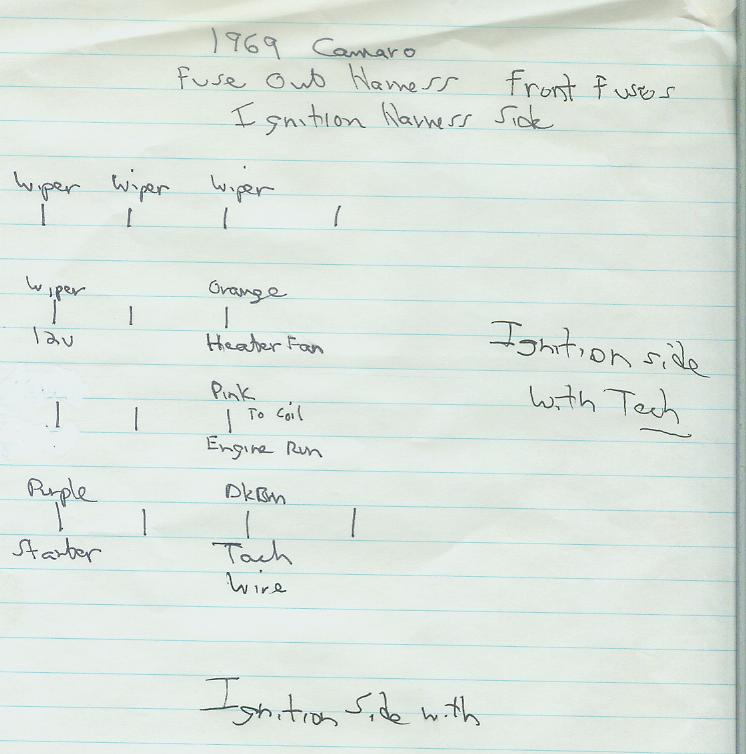 1969 Camaro
Fuse Out Harness Front Fuses
Ignition Harness Side
Wiper Wiper Wiper
Wiper Orange
12v Heater Fan
Ignition side
with Tach
Pink
To Coil
Engine Run
Purple DkBrn
Starter Tach
Wire
Ignition Side with